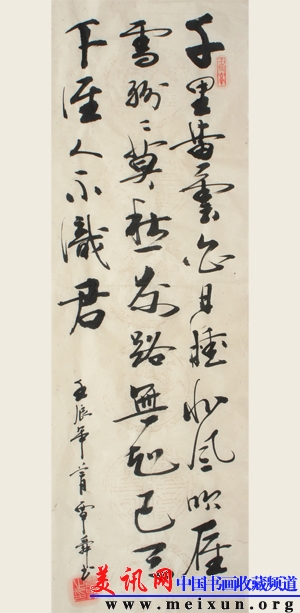 千里黃雲白日曛北風吹雁
雪紛〻莫愁前路無知己天
下誰人不識君
壬辰年
美讯网 中国书画收藏频道
www.meixun.org